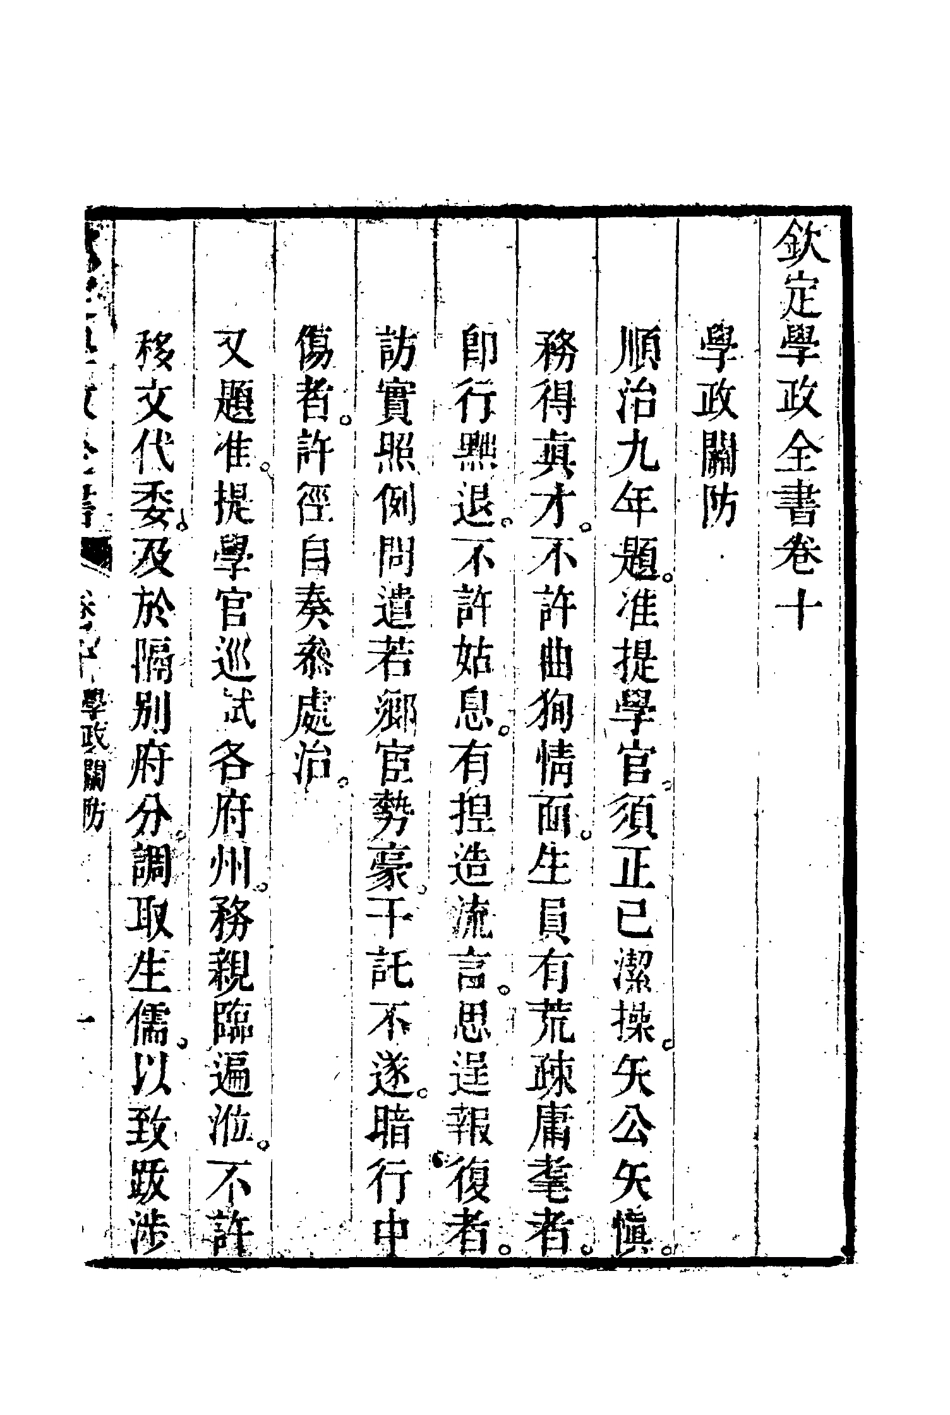 欽定學政全書卷十
學政關防
順治九年題。准提學官。須正已潔操。矢公矢愼。
務得眞才。不許曲狥情面。生員有荒疎庸耄者。
卽行黜退。不許姑息。有揑造流言。思逞報復者。
訪實照例問遣若鄉宦勢豪。干託不遂。暗行中
傷者。許徑自奏叅處治。
又題准。提學官巡試各府州。務親臨遍涖。不許
移文代委。及於隔別府分。調取生儒。以致跋涉
學政全書 卷十 學政關防 一